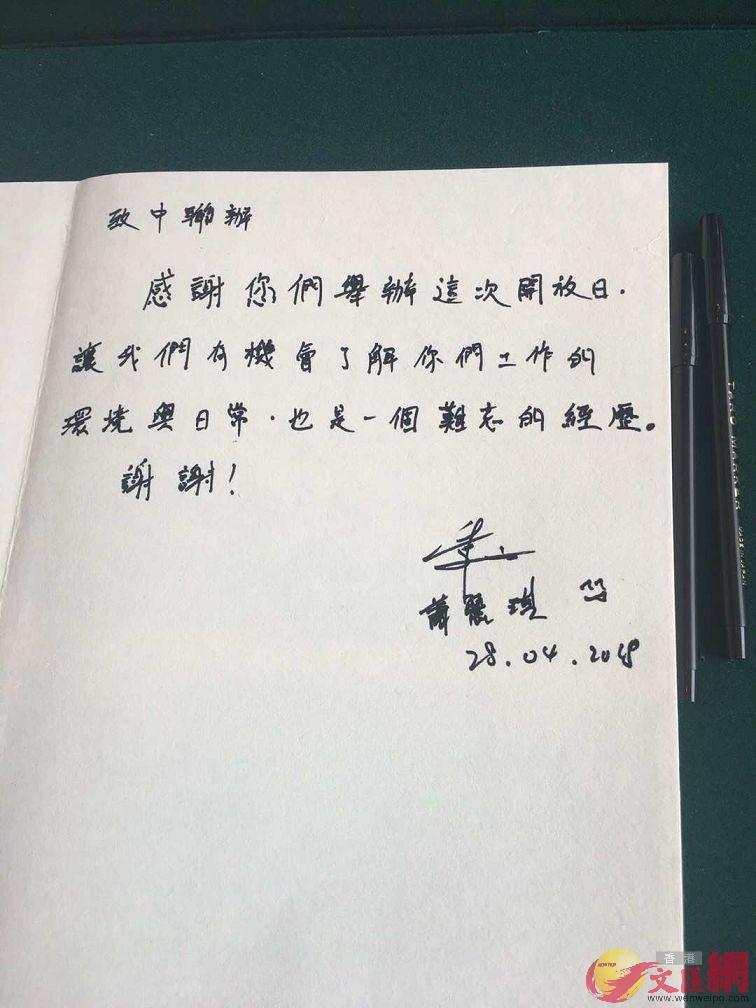 致中聯辦
感謝您們舉辦這次開放日.
讓我們有機會了解你們工作的
環境與日常.也是一個難忘的經歷。
謝謝!
蕭麗琪
28.04.2018
香港
文匯網
www.wenweipo.com